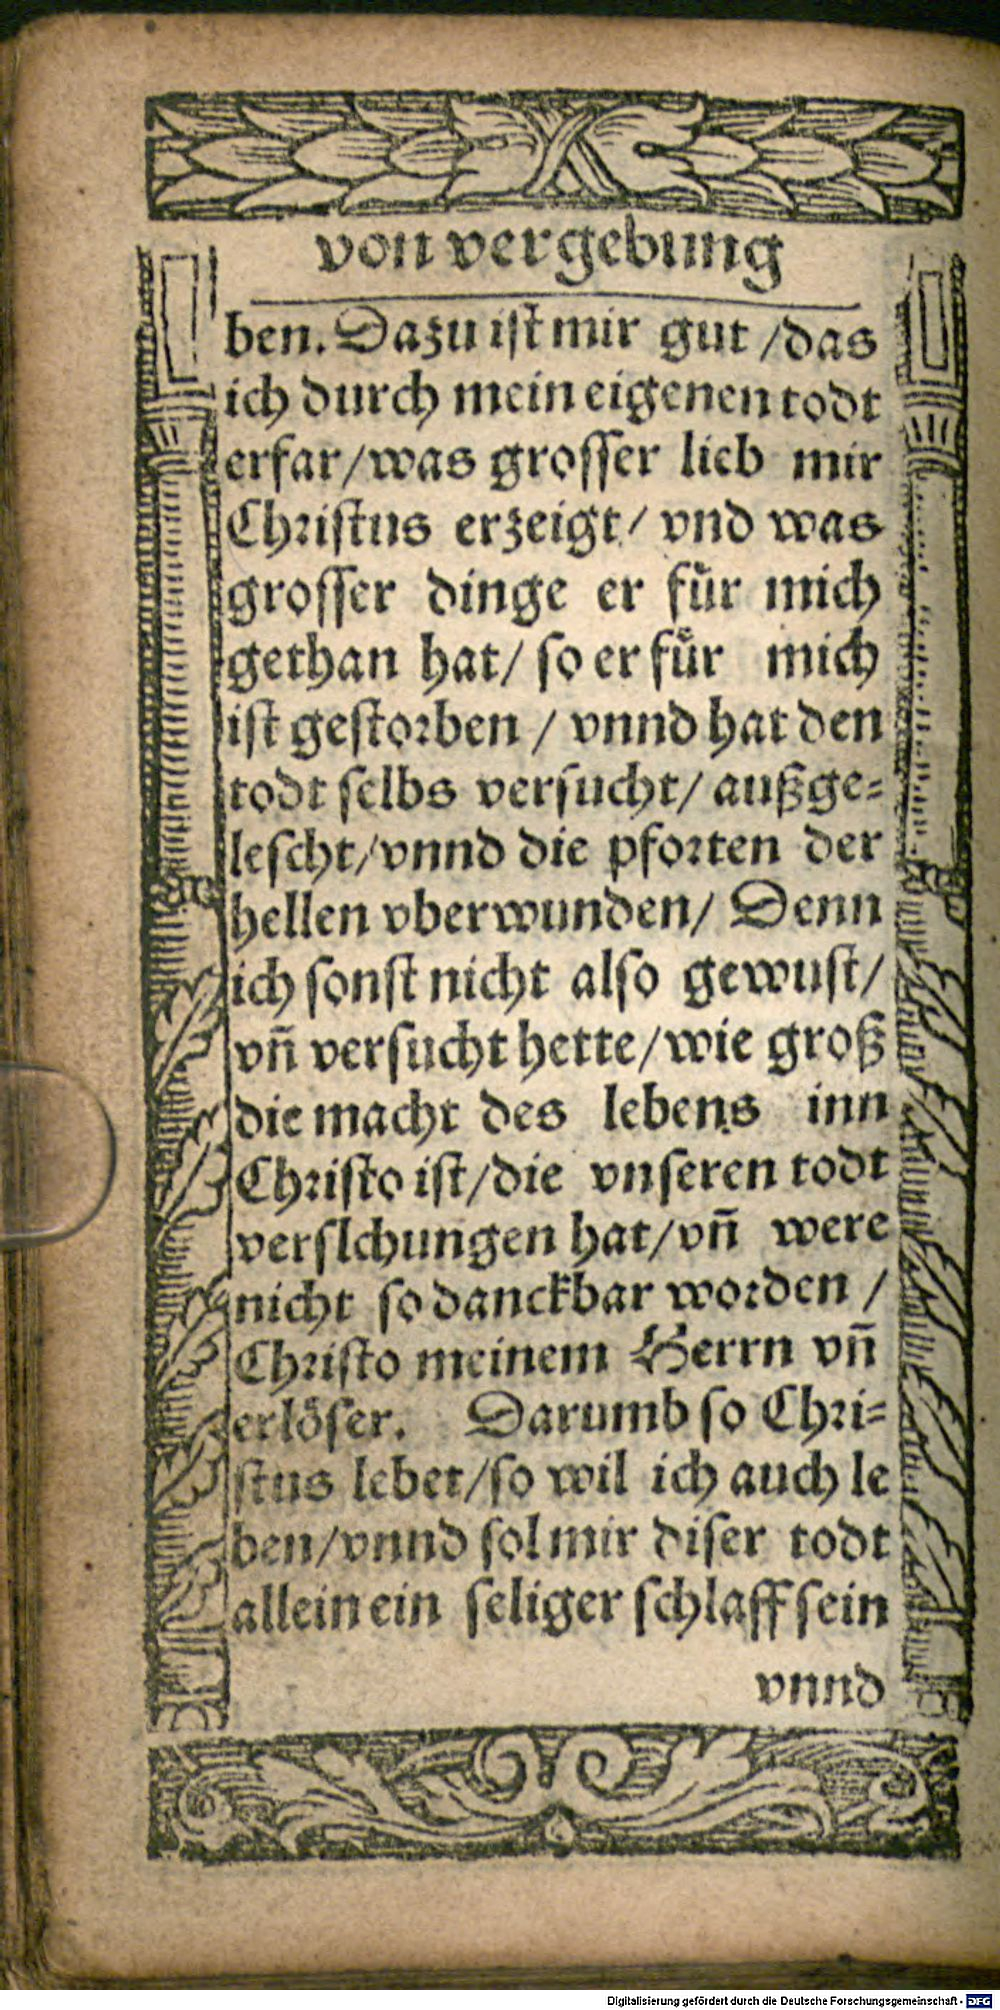 von vergebung
ben. Dazu ist mir gut / das
ich durch mein eigenen todt
erfar / was grosser lieb mir
Christus erzeigt / vnd was
grosser dinge er fuͤr mich
gethan hat / so er fuͤr mich
ist gestorben / vnnd hat den
todt selbs versucht / außge-
lescht / vnnd die pforten der
hellen vberwunden / Denn
ich sonst nicht also gewust /
vñ versucht hette / wie groß
die macht des lebens inn
Christo ist / die vnseren todt
verslchungen hat / vñ were
nicht so danckbar worden /
Christo meinem Herrn vñ
erlöser. Darumb so Chri-
stus lebet / so wil ich auch le
ben / vnnd sol mir diser todt
allein ein seliger schlaff sein
vnnd
Digitalisierung gefördert durch die Deutsche Forschungsgemeinschaft - DFG